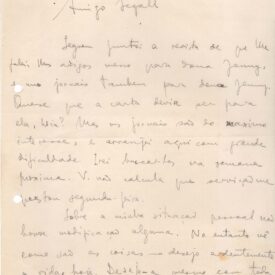 Amigo Segall
Seguem juntos a revista de que lhe
falei uns artigos meus para dona Jenny,
e uns jornais tambem para dona Jenny.
Quasi que a carta devia ser para
ela, heim? Mas os jornais são do maximo
interesse, e arranjei aqui com grande
dificuldade. Irei buscal-os na semana
proxima. V. não calcula que
segunda-feira.
Sobre a minha situação pessoal não
houve modificação alguma. No entanto vê
como são as coisas: desejo ardentemente
mesmo com toda